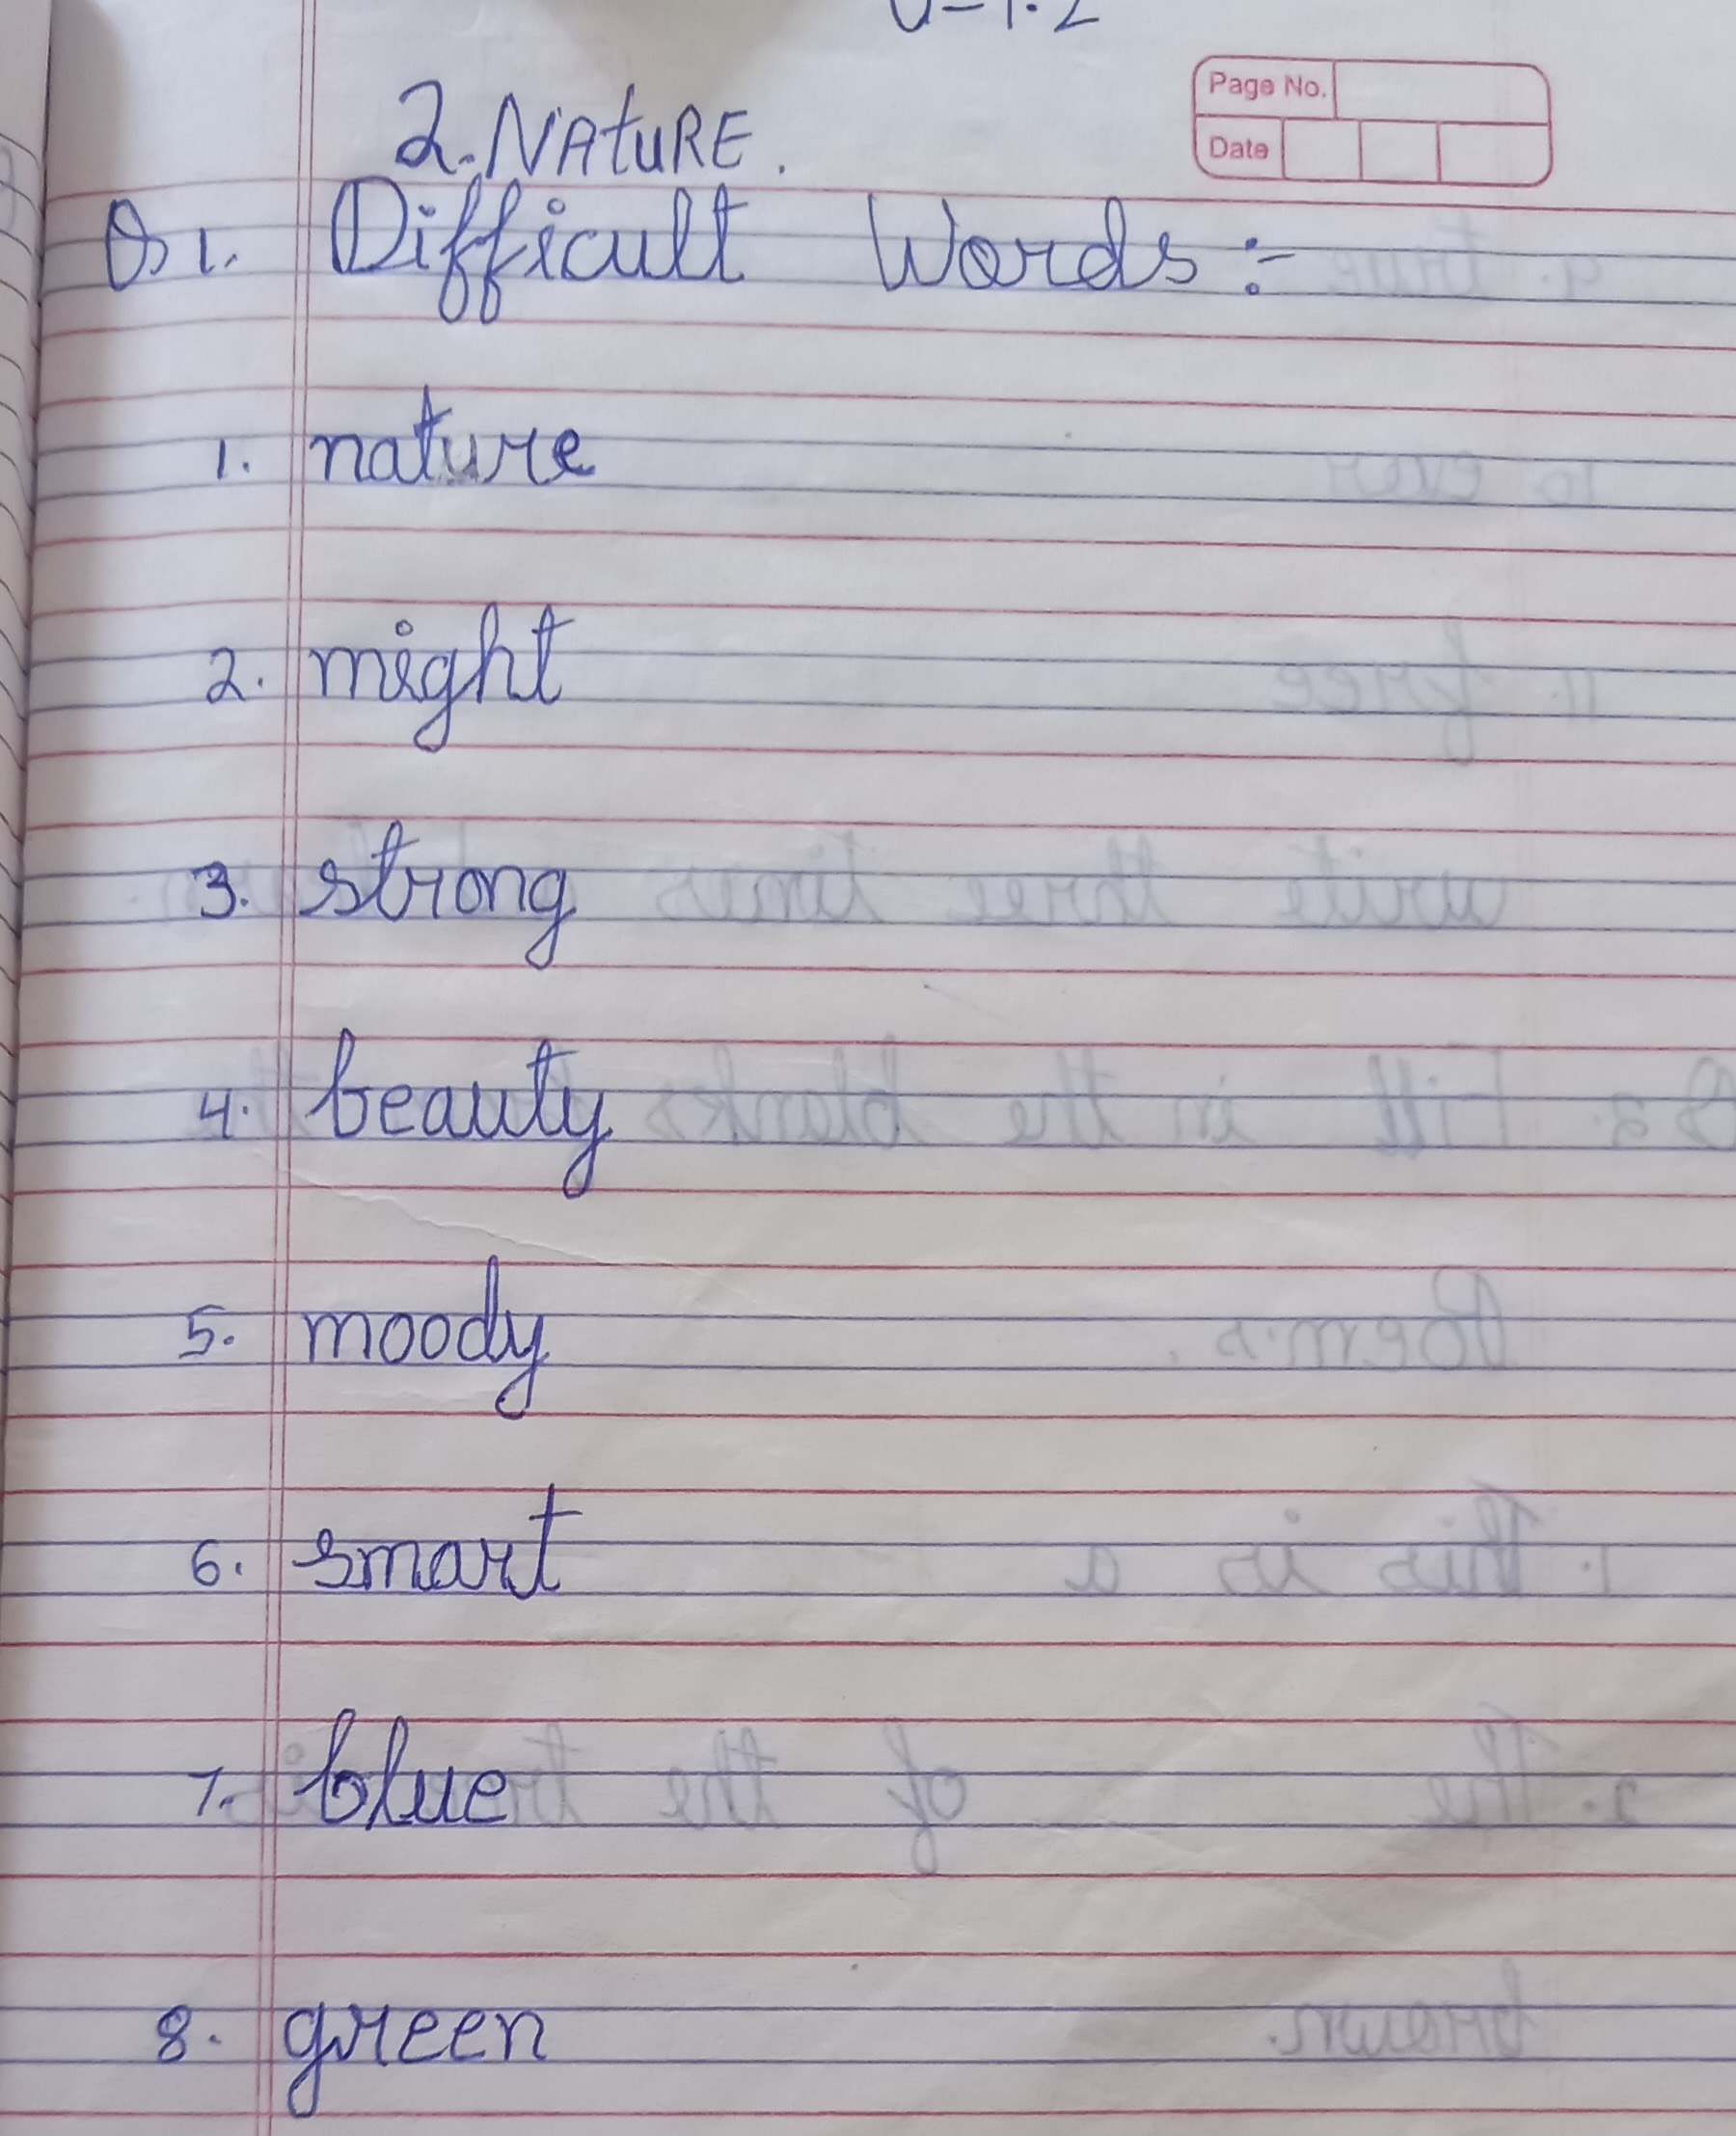 U-1.2
Page No.
Date
2. NATURE.
Q1. Difficult Words :-
1. nature
2. might
3. strong
4. beauty
5. moody
6. smart
7. blue
8. green